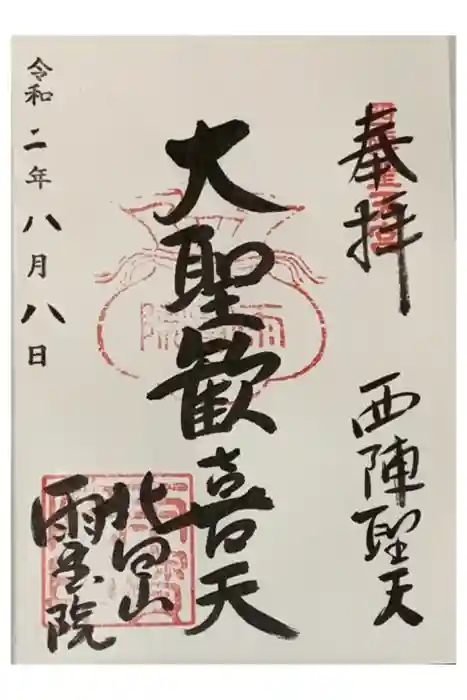 奉拝
西陣聖天
大聖歓喜天
北向山
雨宝院
令和二年八月八日